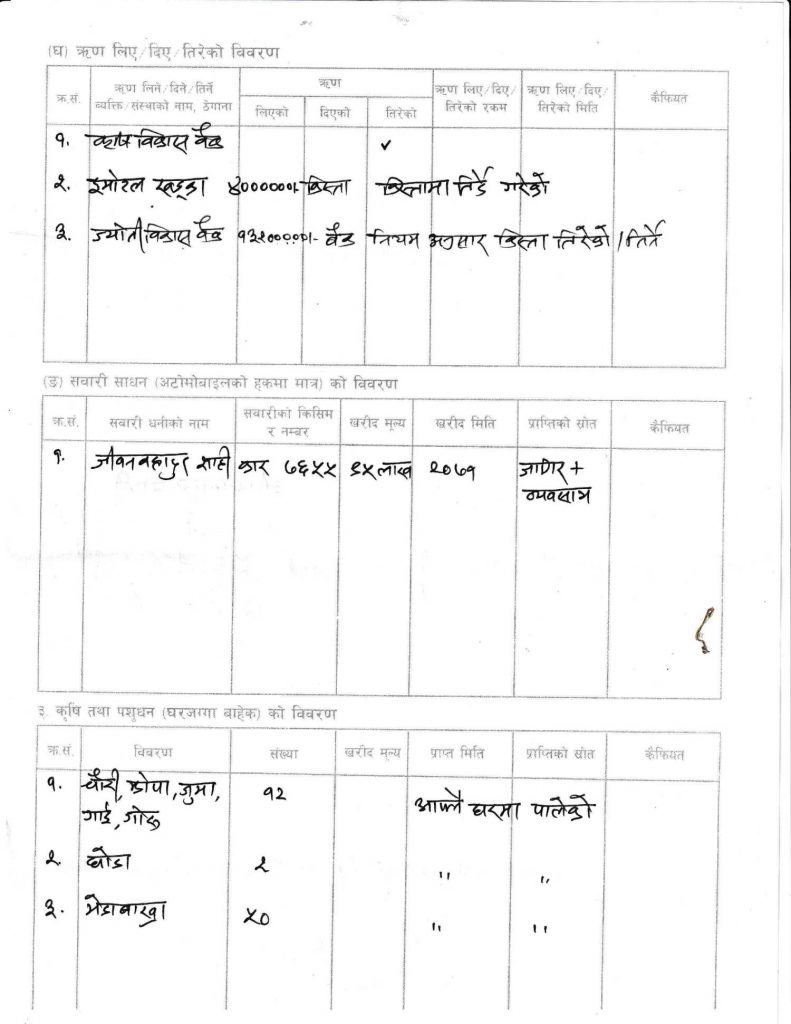 (घ) ऋण लिए/दिए/तिरेको विवरण
क्र.सं. ऋण लिने/दिने/तिर्ने व्यक्ति/संस्थाको नाम, ठेगाना ऋण ऋण लिए/दिए/तिरेको रकम ऋण लिए/दिए/तिरेको मिति कैफियत
लिएको दिएको तिरेको
१. कृषि विकास बैंक ✓
२. इमोरल खड्का ४००००००।- किस्ता किस्तामा तिर्दै गरेको
३. ज्योती विकास बैंक बैंक नियम अनुसार किस्ता तिरेको / तिर्ने
(ङ) सवारी साधन (अटोमोबाइलको हकमा मात्र) को विवरण
क्र.सं. सवारी धनीको नाम सवारीको किसिम र नम्बर खरीद मूल्य खरीद मिति प्राप्तिको स्रोत कैफियत
१. जीवन बहादुर शाही कार ७६५५ लाख २०७१ जागिर +
व्यवसाय
३. कृषि तथा पशुधन (घरजग्गा बाहेक) को विवरण
क्र.सं. विवरण संख्या खरीद मूल्य प्राप्त मिति प्राप्तिको स्रोत कैफियत
१. चौरी, झोपा, जुमा, १२ आफ्नै घरमा पालेको
गाई, गोरु
२. घोडा २ " "
३. भेडाबाख्रा ५० " "